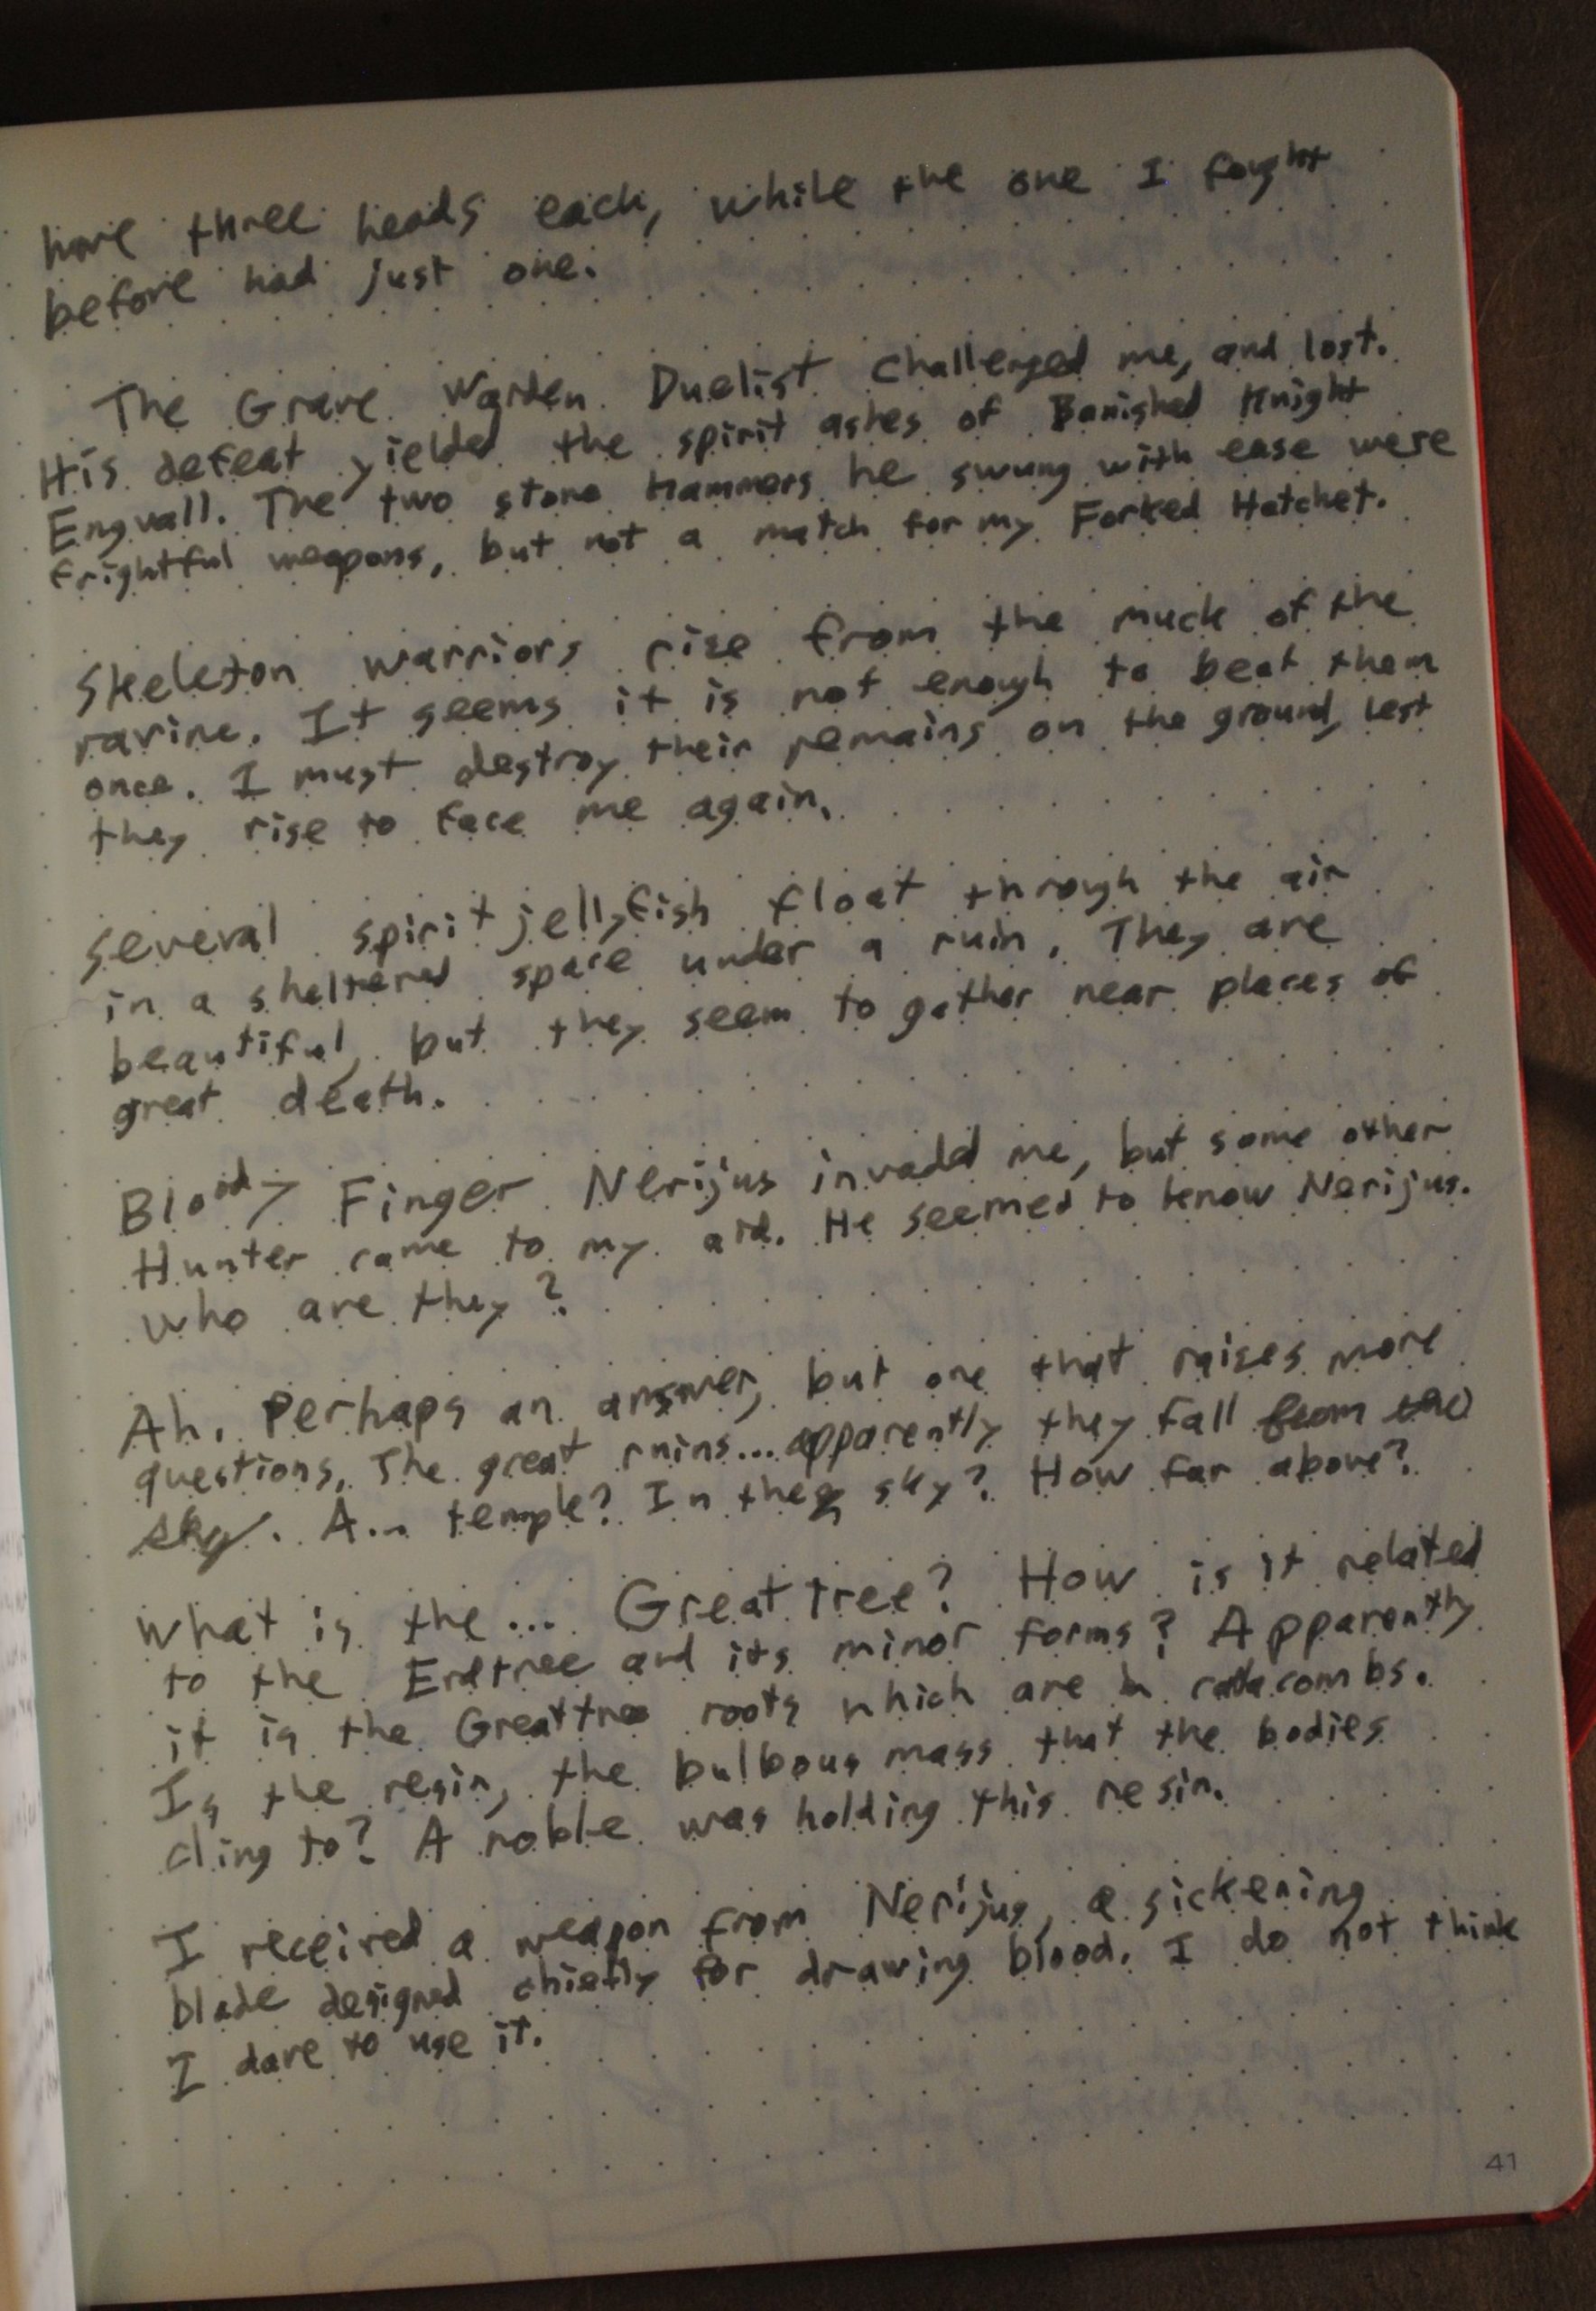 have three heads each, while the one I fought
before had just one.
The Grave Warden Duelist challenged me, and lost.
His defeat yielded the spirit ashes of Banished Knight
Engvall. The two stone hammers he swung with ease were
frightful weapons, but not a match for my Forked Hatchet.
Skeleton warriors rise from the muck of the
ravine. It seems it is not enough to beat them
once. I must destroy their remains on the ground, lest
they rise to face me again.
Several spirit jellyfish float through the air
in a sheltered space under a ruin. They are
beautiful, but they seem to gather near places of
great death.
Bloody Finger Nerijus invaded me, but some other
Hunter came to my aid. He seemed to know Nerijus.
Who are they?
Ah. Perhaps an answer, but one that raises more
questions. The great ruins... apparently they fall from the
sky. A... temple? In the sky? How far above?
What is the... Greattree? How is it related
to the Erdtree and its minor forms? Apparently
it is the Greattree roots which are in catacombs.
Is the resin, the bulbous mass that the bodies
cling to? A noble was holding this resin.
I received a weapon from Nerijus, a sickening
blade designed chiefly for drawing blood. I do not think
I dare to use it.
41